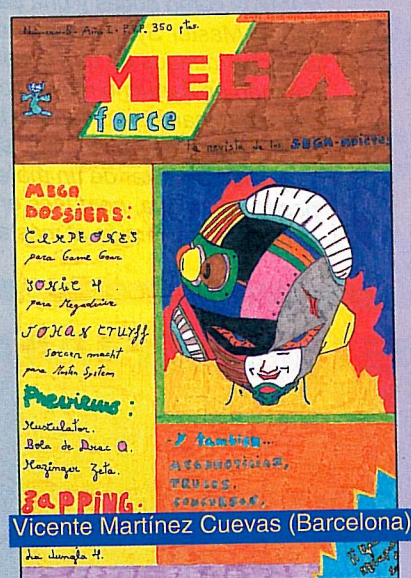 Número 5 - Año I - P.V.P. 350 ptas.
MEGA
force
la revista de los SEGA-adictos
MEGA
DOSSIERS:
CAMPEONES
para Game Gear
SONIC 4.
para Megadrive
JOHAN CRUYFF
soccer macht
para Master System
Previews:
Mustulator.
Bola de Drac
Mazinger Zeta.
ZAPPING:
La Jungla 4.
y también...
MEGANOTICIAS,
TRUCOS,
CONCURSOS,
Vicente Martínez Cuevas (Barcelona)